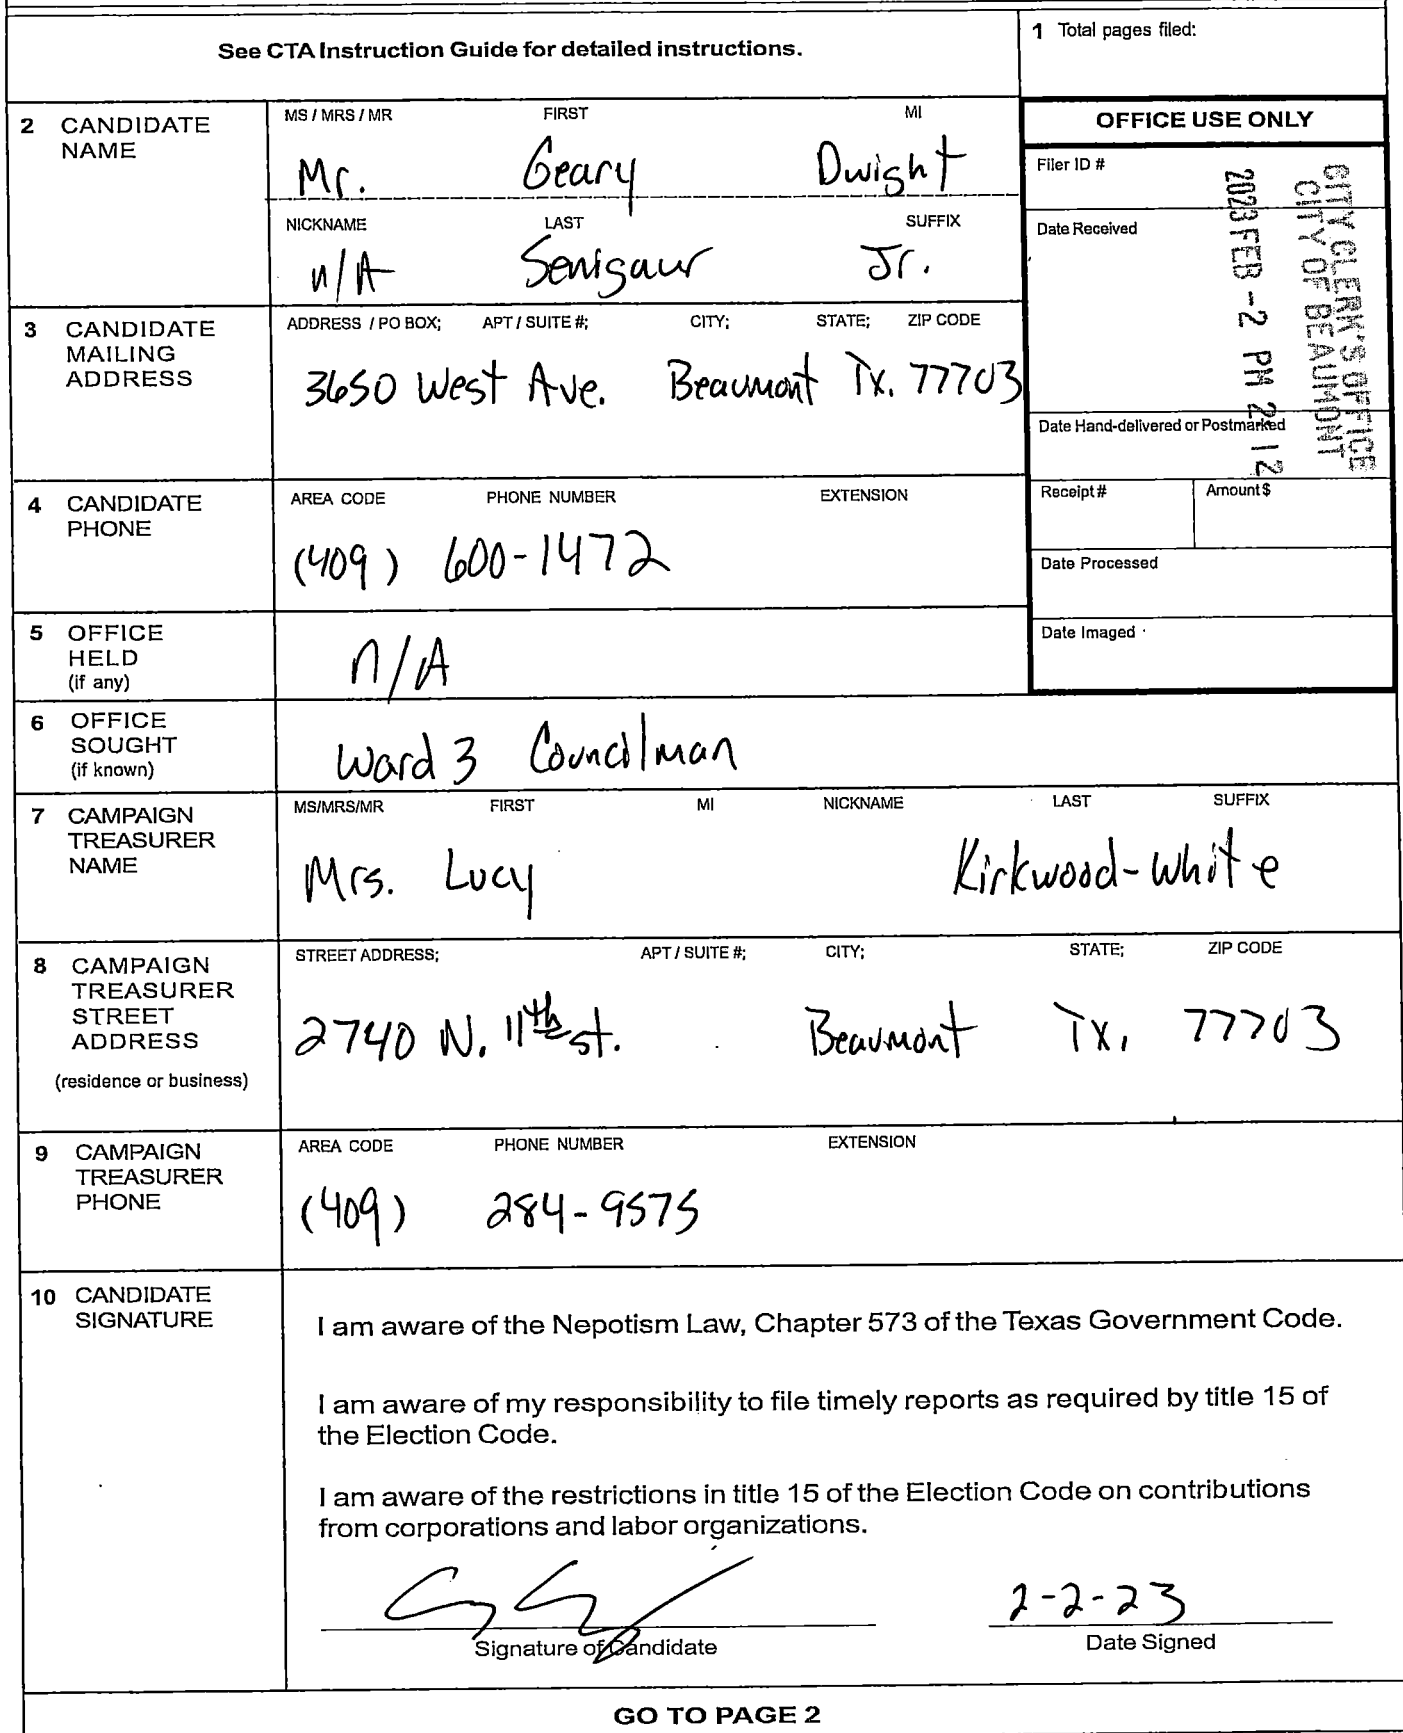 See CTA Instruction Guide for detailed instructions.
1 Total pages filed:
2 CANDIDATE NAME
MS / MRS / MR FIRST MI
Mr. Geary Dwight
NICKNAME LAST SUFFIX
n/A Senigaur Jr.
OFFICE USE ONLY
Filer ID #
Date Received
CITY CLERK'S OFFICE
CITY OF BEAUMONT
2023 FEB -2 PM 2 12
Date Hand-delivered or Postmarked
Receipt # Amount $
Date Processed
Date Imaged
3 CANDIDATE MAILING ADDRESS
ADDRESS / PO BOX; APT / SUITE #; CITY; STATE; ZIP CODE
3650 West Ave. Beaumont Tx. 77703
4 CANDIDATE PHONE
AREA CODE PHONE NUMBER EXTENSION
(409) 600-1472
5 OFFICE HELD (if any)
n/A
6 OFFICE SOUGHT (if known)
Ward 3 Councilman
7 CAMPAIGN TREASURER NAME
MS/MRS/MR FIRST MI NICKNAME LAST SUFFIX
Mrs. Lucy Kirkwood-White
8 CAMPAIGN TREASURER STREET ADDRESS
(residence or business)
STREET ADDRESS; APT / SUITE #; CITY; STATE; ZIP CODE
2740 N. 11th st. Beaumont Tx. 77703
9 CAMPAIGN TREASURER PHONE
AREA CODE PHONE NUMBER EXTENSION
(409) 284-9575
10 CANDIDATE SIGNATURE
I am aware of the Nepotism Law, Chapter 573 of the Texas Government Code.
I am aware of my responsibility to file timely reports as required by title 15 of
the Election Code.
I am aware of the restrictions in title 15 of the Election Code on contributions
from corporations and labor organizations.
2-2-23
Signature of Candidate Date Signed
GO TO PAGE 2